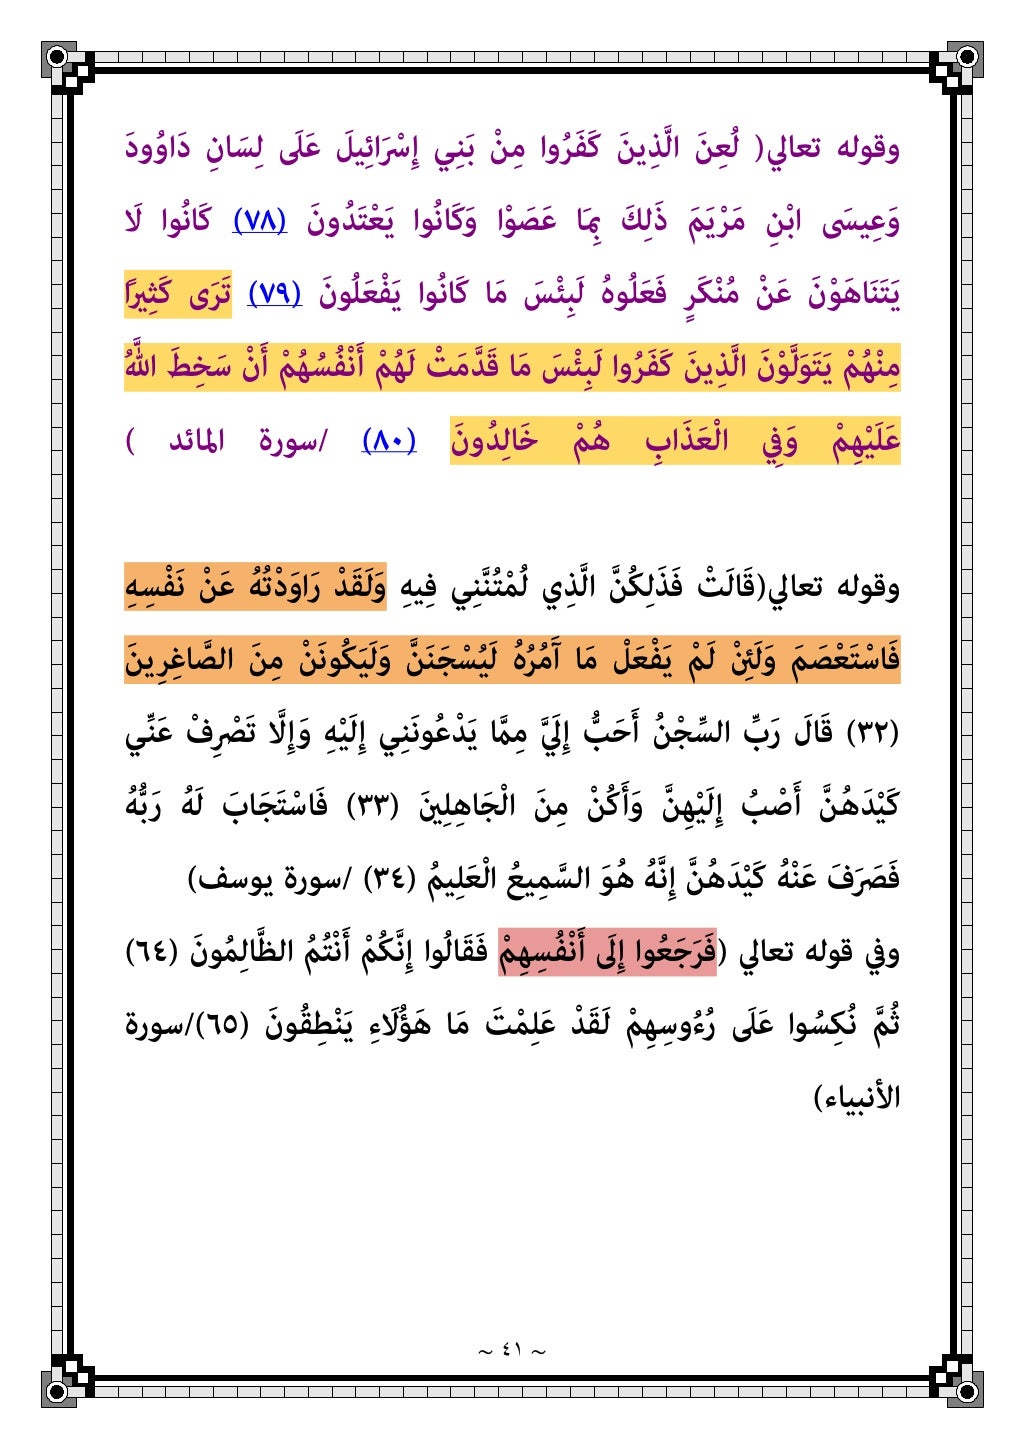 وقوله تعالي( لُعِنَ الَّذِينَ كَفَرُوا مِنْ بَنِي إِسْرَائِيلَ عَلَى لِسَانِ دَاوُودَ
وَعِيسَى ابْنِ مَرْيَمَ ذَلِكَ بِمَا عَصَوْا وَكَانُوا يَعْتَدُونَ (٧٨) كَانُوا لَا
يَتَنَاهَوْنَ عَنْ مُنْكَرٍ فَعَلُوهُ لَبِئْسَ مَا كَانُوا يَفْعَلُونَ (٧٩) تَرَى كَثِيرًا
مِنْهُمْ يَتَوَلَّوْنَ الَّذِينَ كَفَرُوا لَبِئْسَ مَا قَدَّمَتْ لَهُمْ أَنْفُسُهُمْ أَنْ سَخِطَ اللَّهُ
عَلَيْهِمْ وَفِي الْعَذَابِ هُمْ خَالِدُونَ (٨٠) /سورة المائد )
وقوله تعالي(قَالَتْ فَذَلِكُنَّ الَّذِي لُمْتُنَّنِي فِيهِ وَلَقَدْ رَاوَدْتُهُ عَنْ نَفْسِهِ
فَاسْتَعْصَمَ وَلَئِنْ لَمْ يَفْعَلْ مَا آَمُرُهُ لَيُسْجَنَنَّ وَلَيَكُونَنْ مِنَ الصَّاغِرِينَ
(٣٢) قَالَ رَبِّ السِّجْنُ أَحَبُّ إِلَيَّ مِمَّا يَدْعُونَنِي إِلَيْهِ وَإِلَّا تَصْرِفْ عَنِّي
كَيْدَهُنَّ أَصْبُ إِلَيْهِنَّ وَأَكُنْ مِنَ الْجَاهِلِينَ (٣٣) فَاسْتَجَابَ لَهُ رَبُّهُ
فَصَرَفَ عَنْهُ كَيْدَهُنَّ إِنَّهُ هُوَ السَّمِيعُ الْعَلِيمُ (٣٤) /سورة يوسف)
وفي قوله تعالي (فَرَجَعُوا إِلَى أَنْفُسِهِمْ فَقَالُوا إِنَّكُمْ أَنْتُمُ الظَّالِمُونَ (٦٤)
ثُمَّ نُكِسُوا عَلَى رُءُوسِهِمْ لَقَدْ عَلِمْتَ مَا هَؤُلَاءِ يَنْطِقُونَ (٦٥)/سورة
الأنبياء)
~ ٤١ ~